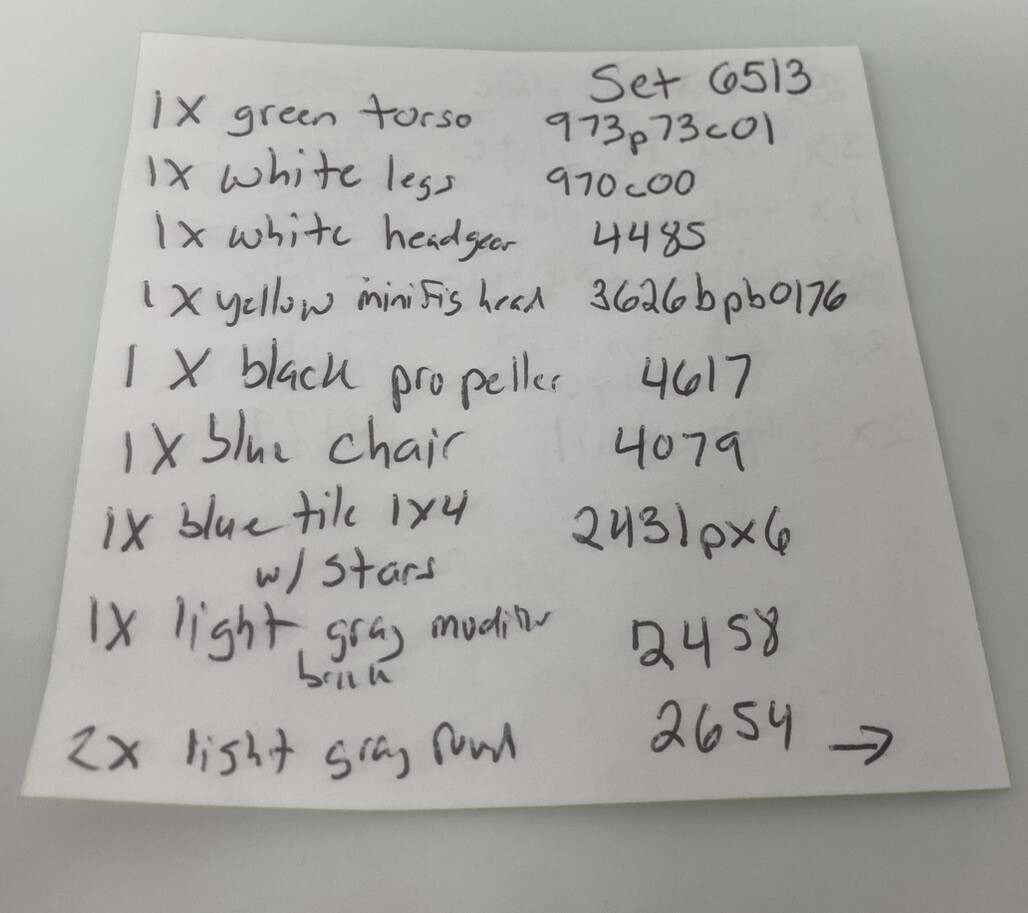 Set 6513
1X green torso 973p73c01
1X white legs 970c00
1X white headgear 4485
1X yellow minifig head 3626bpb0176
1 X black propeller 4617
1X blue chair 4079
1X blue tile 1X4 2431px6
w/ stars
1X light gray 2458
brick
2X light gray round 2654 →